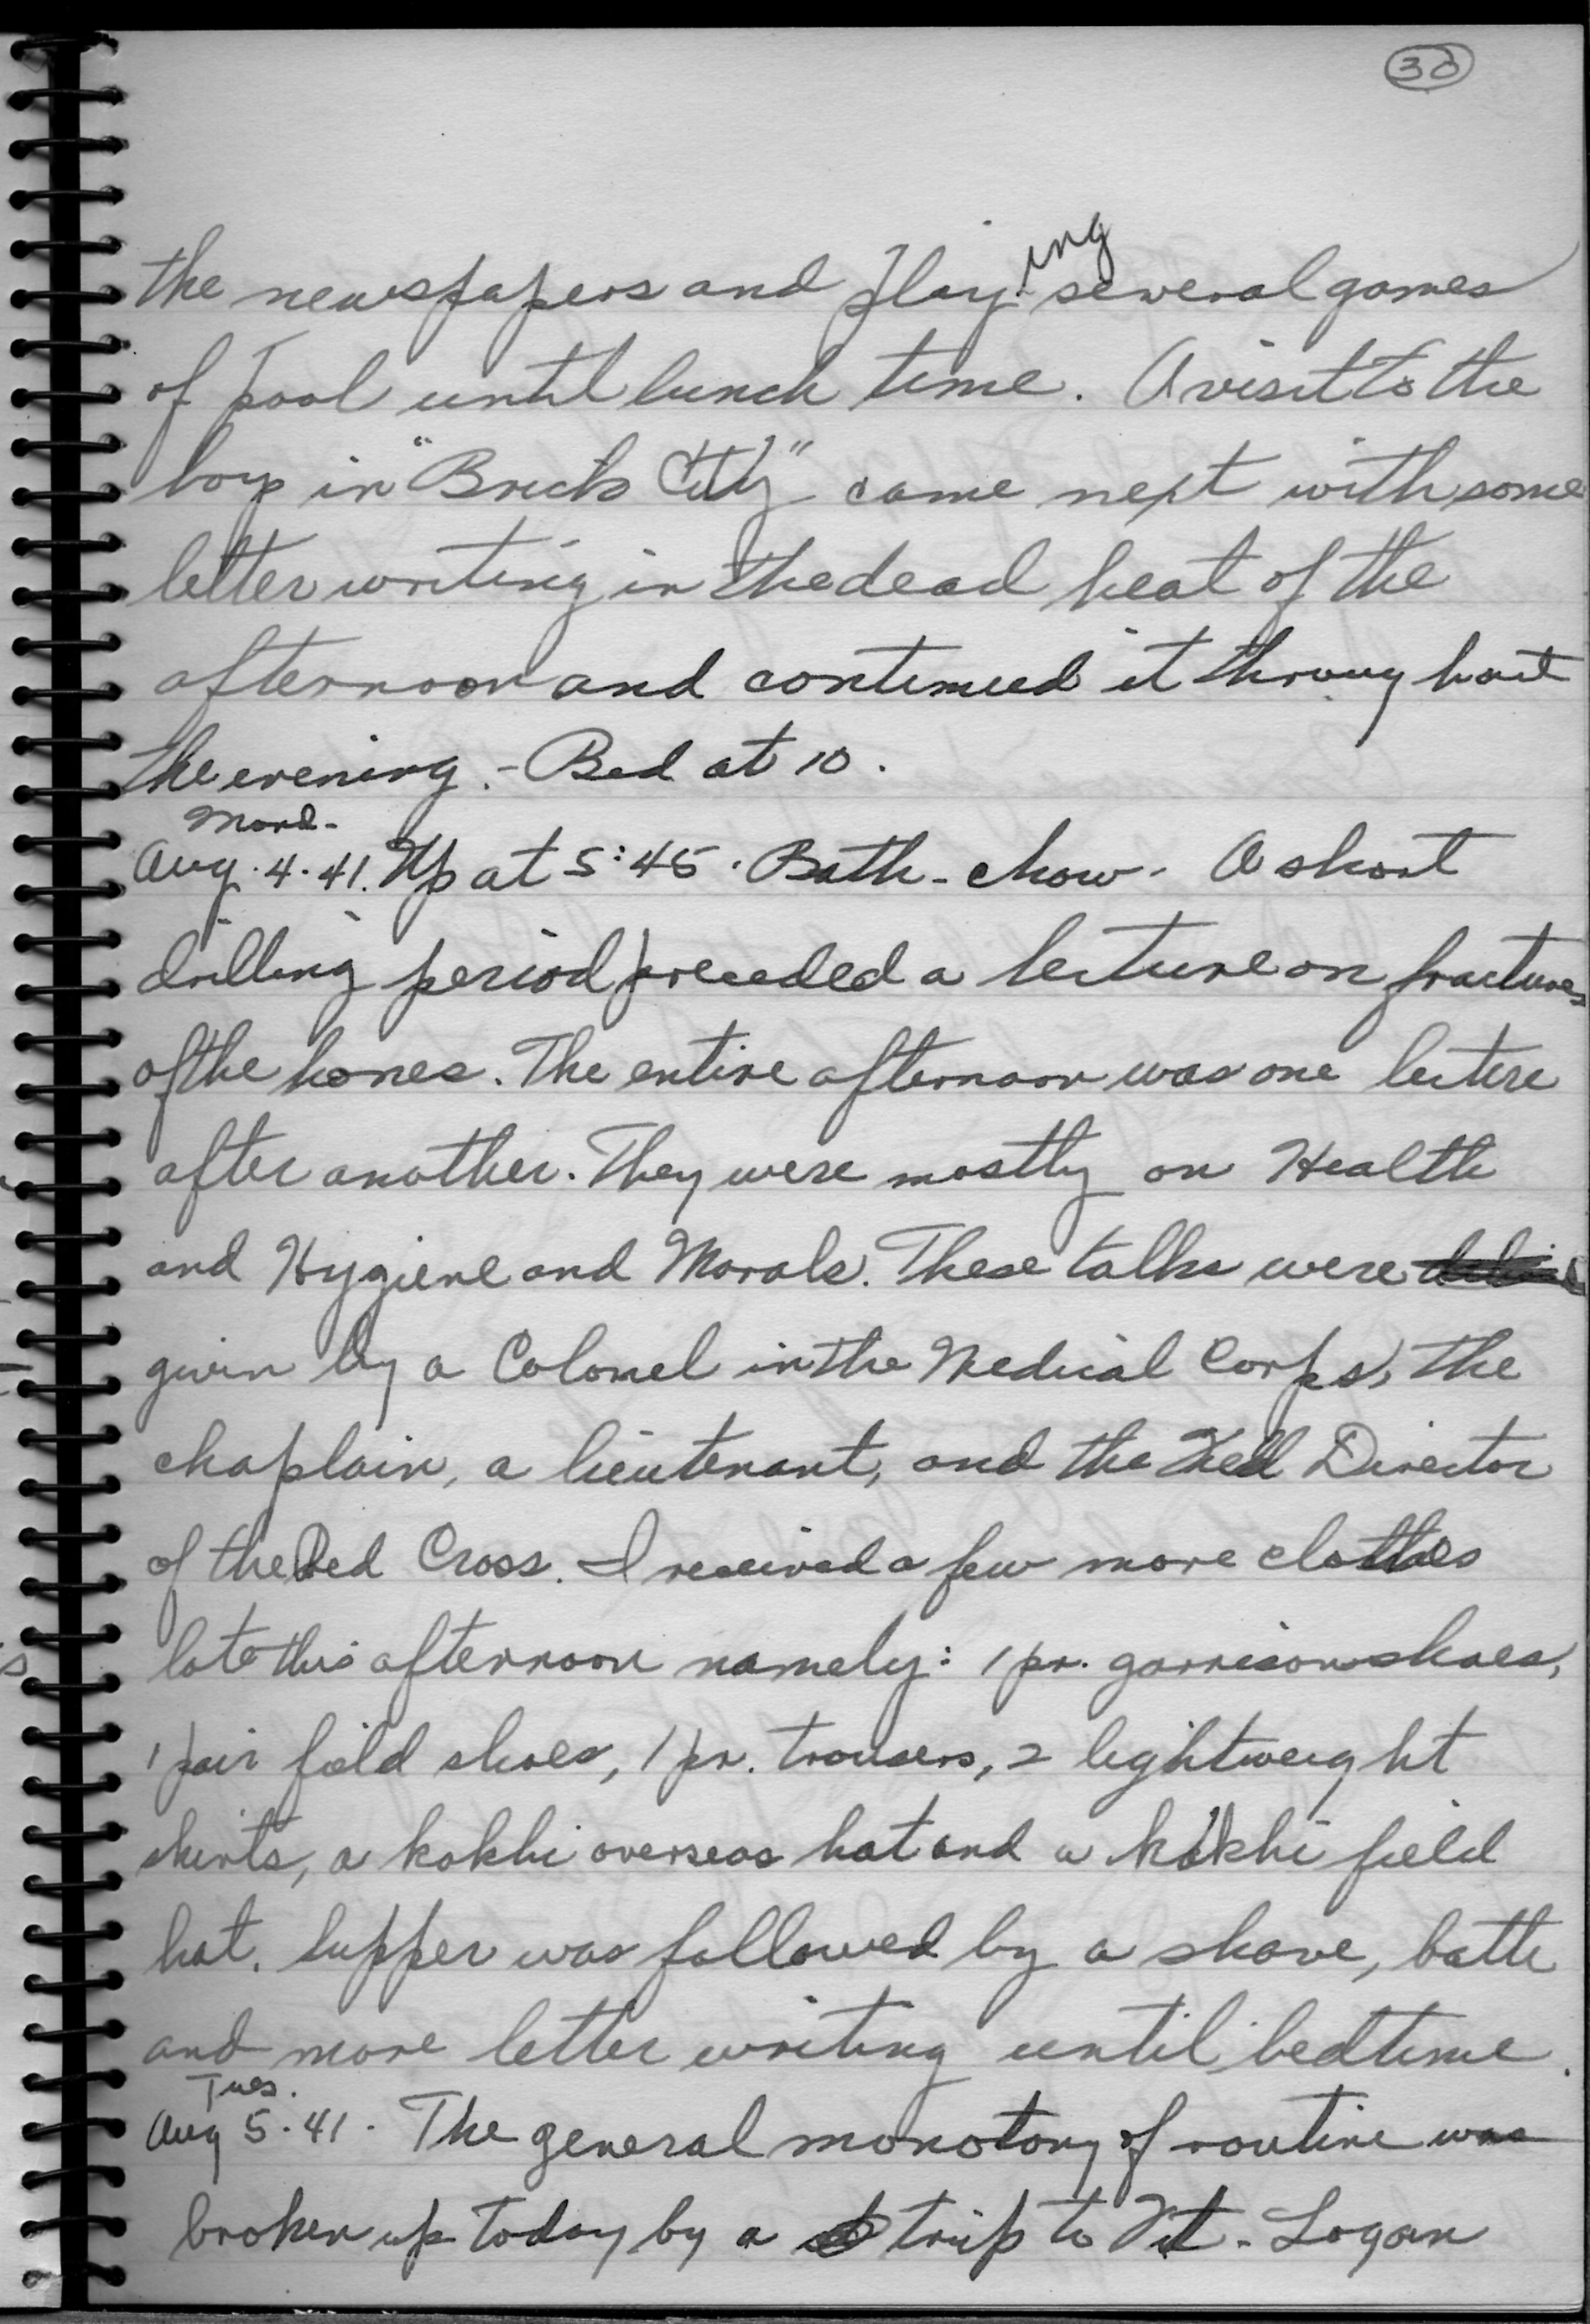 30
the newspapers and playing several games
of pool until lunch time. A visit to the
boys in "Brick City" came next with some
letter writing in the dead heat of the
afternoon and continued it throughout
the evening. - Bed at 10.
Mond.
Aug. 4. 41. Up at 5:45. Bath - chow. A short
drilling period preceded a lecture on fractures
of the bones. The entire afternoon was one lecture
after another. They were mostly on Health
and Hygiene and Morals. These talks were
given by a Colonel in the Medical Corps, the
chaplain, a lieutenant, and the Field Director
of the Red Cross. I received a few more clothes
late this afternoon namely: 1 pr. garrison shoes,
1 pair field shoes, 1 pr. trousers, 2 lightweight
shirts, a kakhi overseas hat and a kakhi field
hat. Supper was followed by a shave, bath
and more letter writing until bedtime.
Tues.
Aug 5. 41. The general monotony of routine was
broken up today by a trip to Ft. Logan